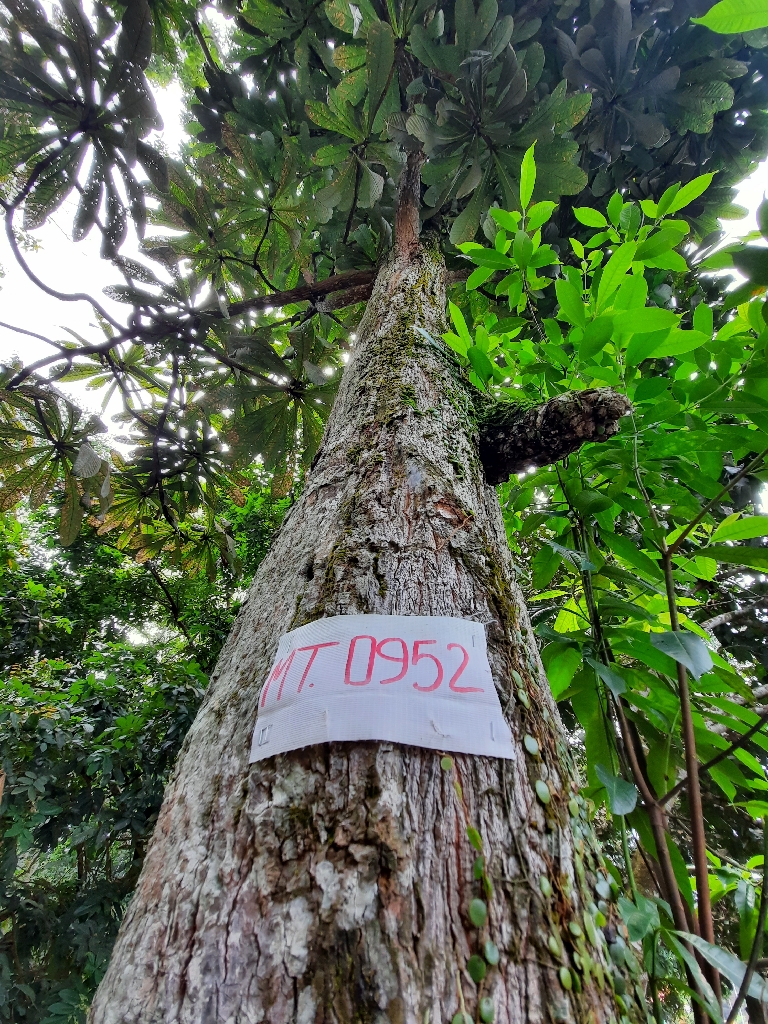 MT. 0952